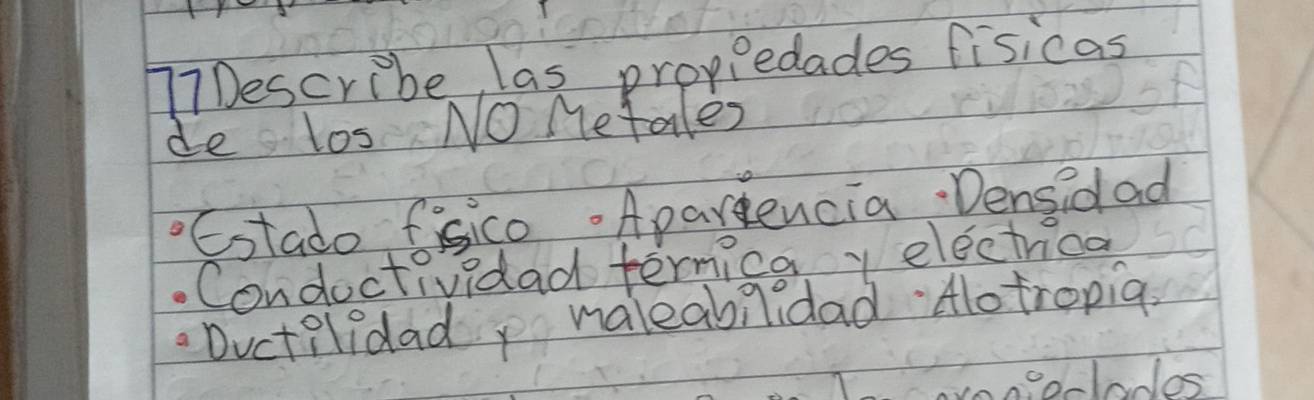 77 Describe las propiedades físicas
de los NO Metales
• Estado físico • Apariencia • Densidad
• Conductividad térmica y eléctrica
• Ductilidad y maleabilidad • Alotropia.
propiedades